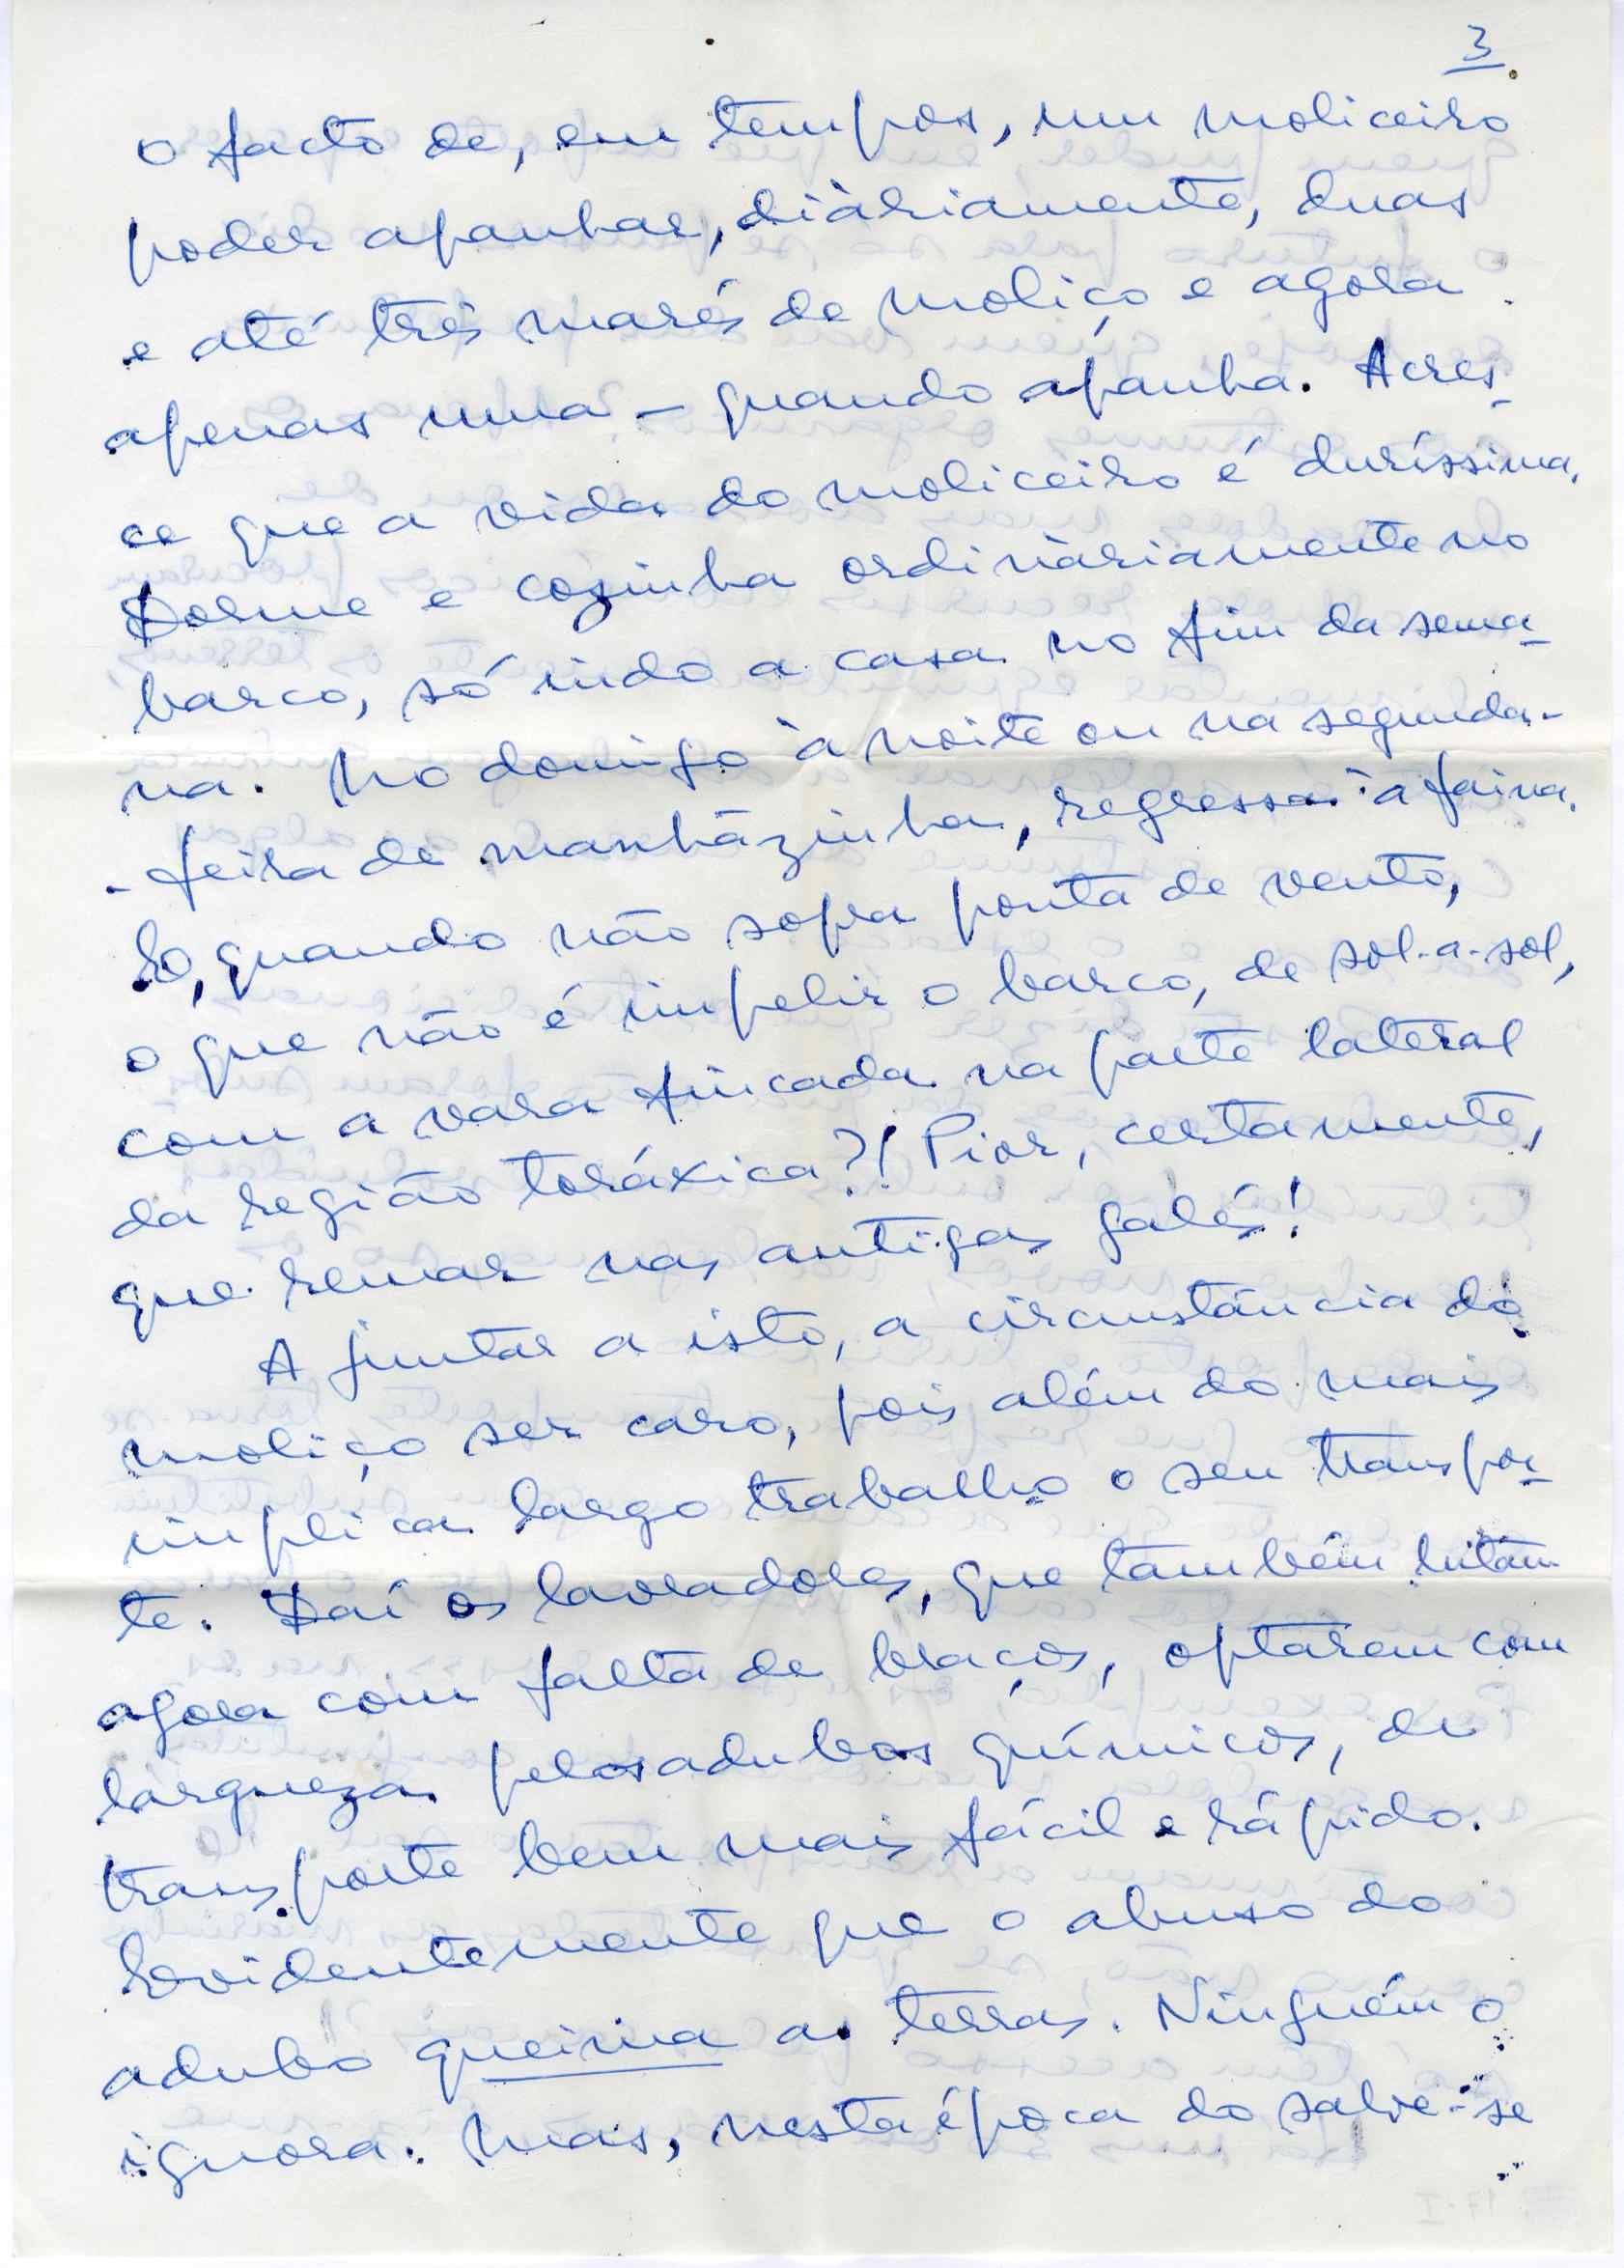 3
o facto de, em tempos, um moliceiro
poder apanhar, diàriamente, duas
e até três marés de moliço e agora
apenas uma – quando apanha. Acres-
ce que a vida do moliceiro é duríssima.
Dorme e cozinha ordinàriamente no
barco, só indo a casa no fim da sema-
na. No domingo à noite ou na segunda-
-feira de manhãzinha, regressa à faina.
E, quando não sopra ponta de vento,
o que não é impelir o barco, de sol-a-sol,
com a vara fincada na parte lateral
da região toráxica?! Pior, certamente,
que remar nas antigas galés!
A juntar a isto, a circunstância do
moliço ser caro, pois além do mais
implica largo trabalho o seu transpor-
te. Daí os lavradores, que também lutam
agora com falta de braços, optarem com
largueza pelos adubos químicos, de
transporte bem mais fácil e rápido.
Evidentemente que o abuso do
adubo queima as terras. Ninguém o
ignora. Mas, nesta época do salve-se